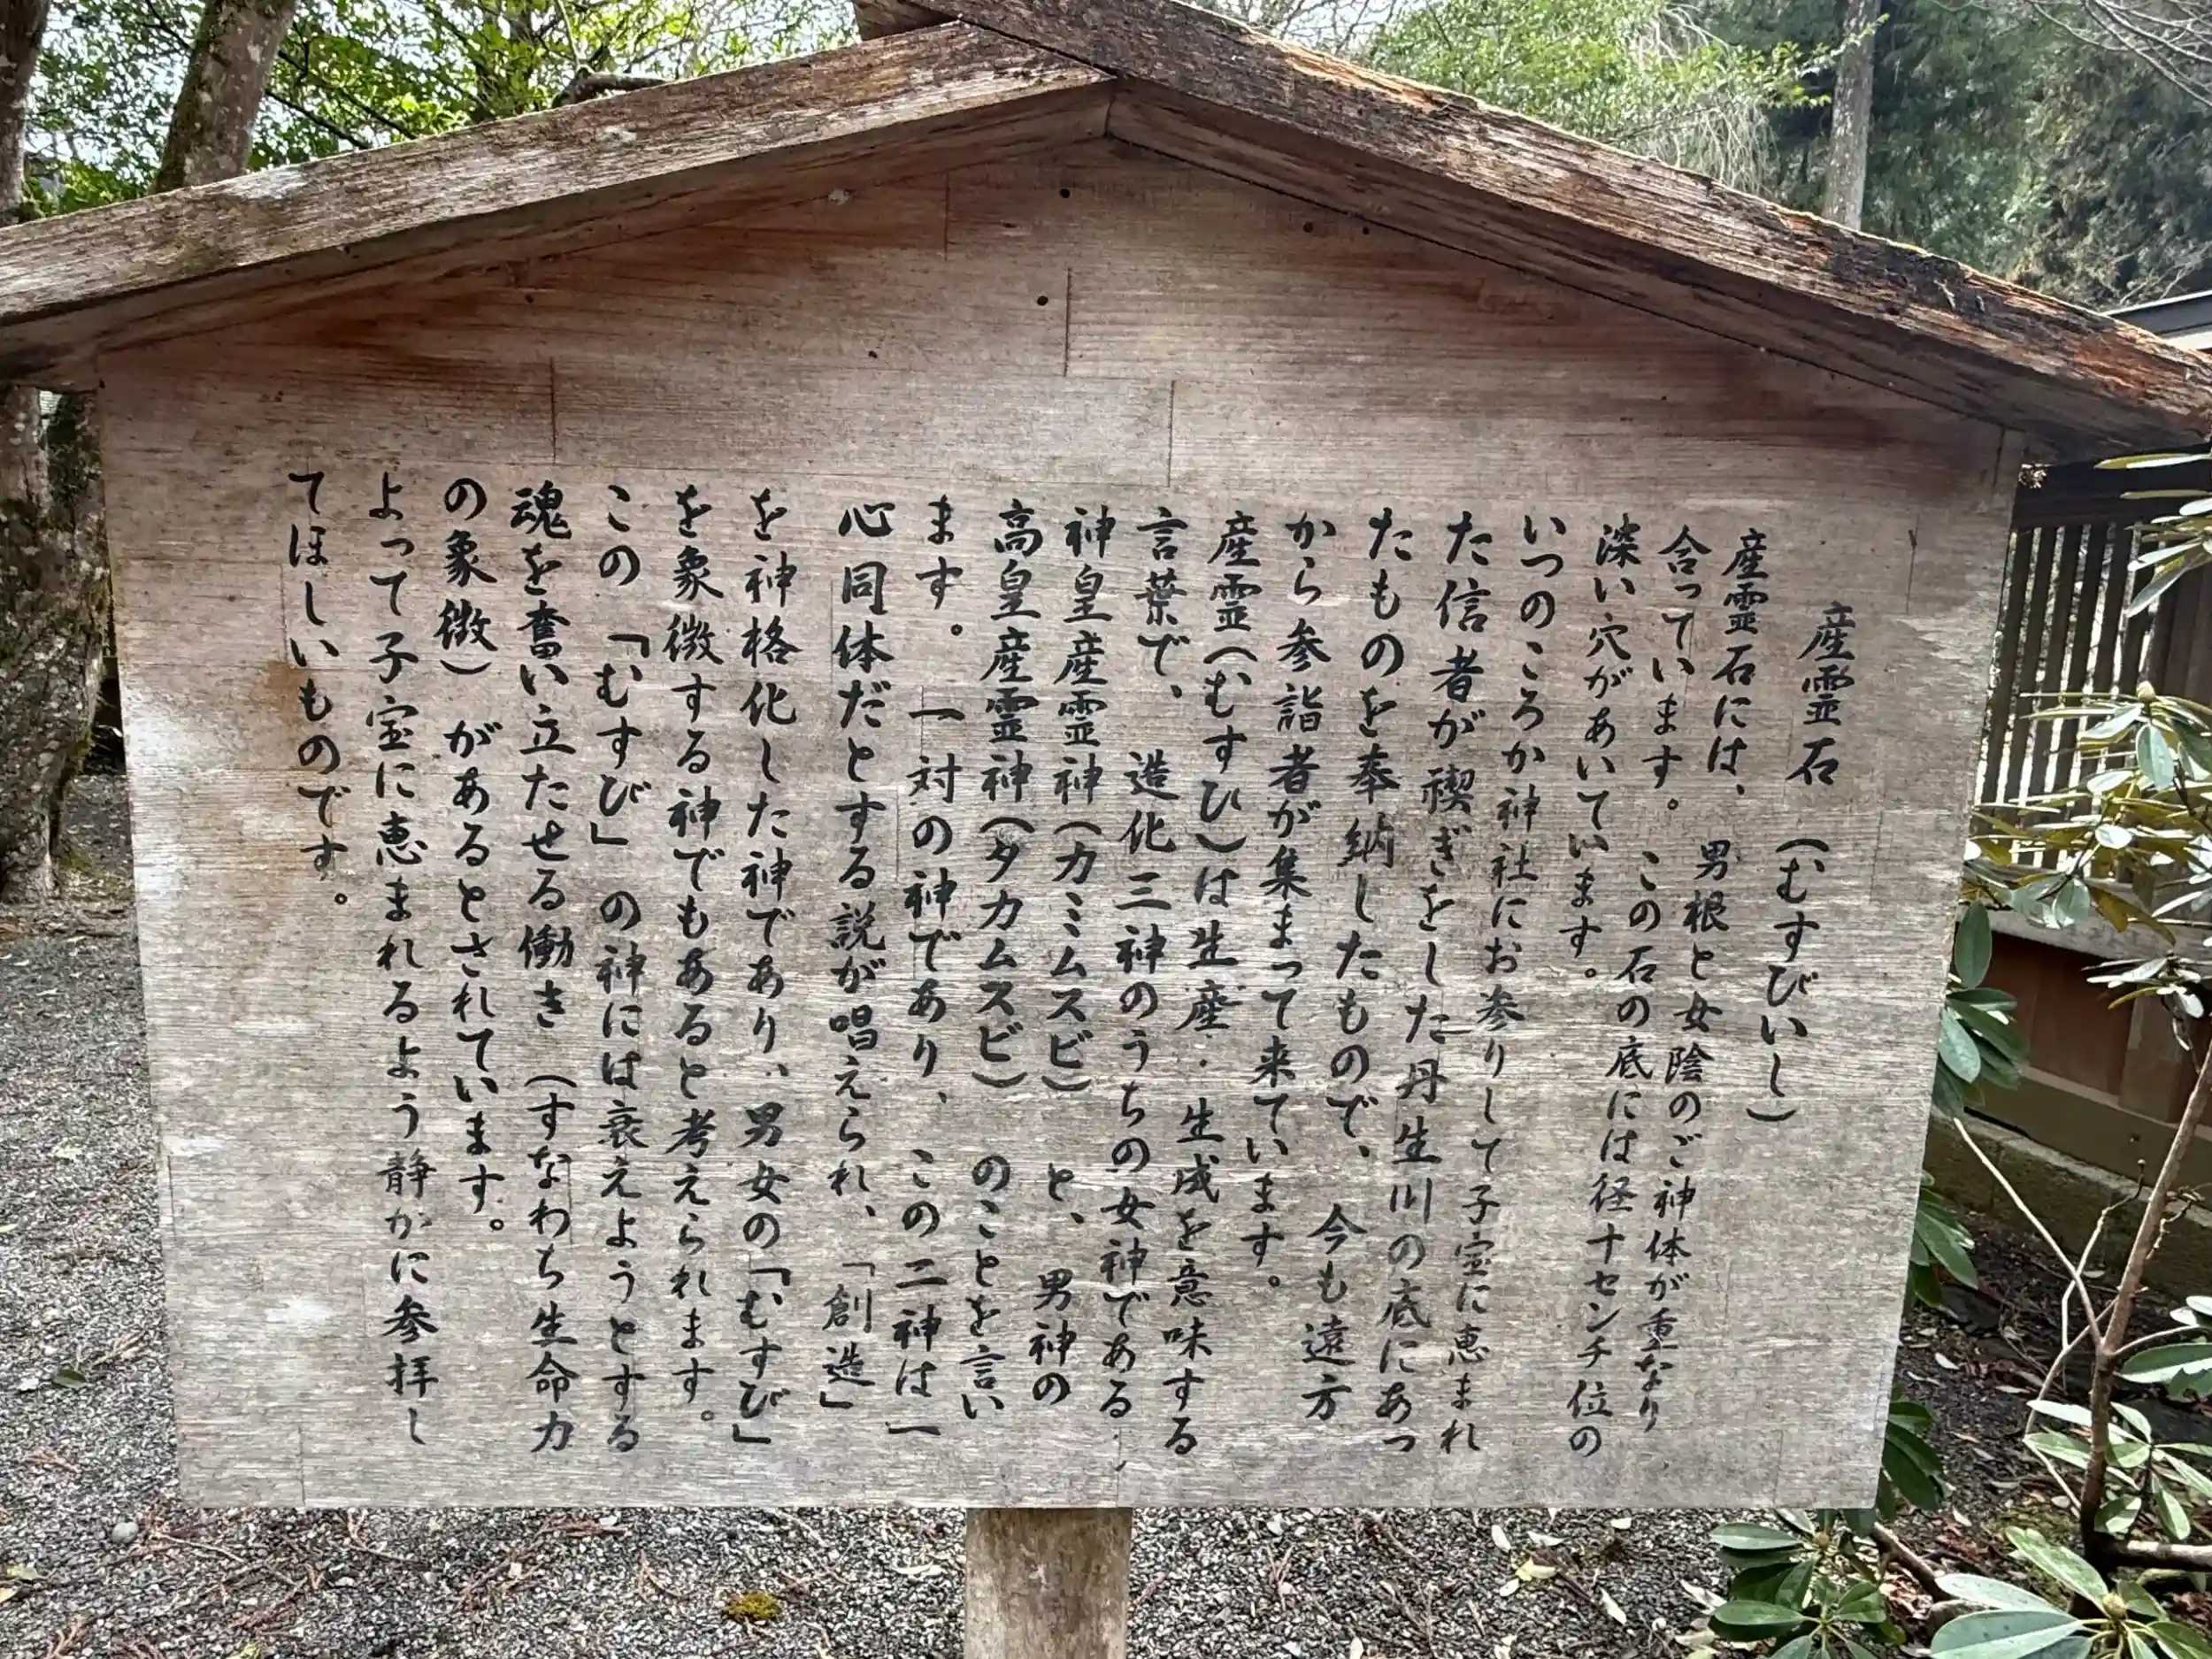 産霊石 (むすびいし)
産霊石には、男根と女陰のご神体が重なり
合っています。この石の底には径十センチ位の
深い穴があいています。
いつのころか神社にお参りして子宝に恵まれ
た信者が禊ぎをした丹生川の底にあっ
たものを奉納したもので、今も遠方
から参詣者が集まって来ています。
産霊(むすひ)は生産・生成を意味する
言葉で、造化三神のうちの女神である
神皇産霊神(カミムスビ)と、男神の
高皇産霊神(タカムスビ)のことを言い
ます。一対の神であり、この二神は一
心同体だとする説が唱えられ、「創造」
を神格化した神であり、男女の「むすび」
を象徴する神でもあると考えられます。
この「むすび」の神には衰えようとする
魂を奮い立たせる働き(すなわち生命力
の象徴)があるとされています。
よって子宝に恵まれるよう静かに参拝し
てほしいものです。